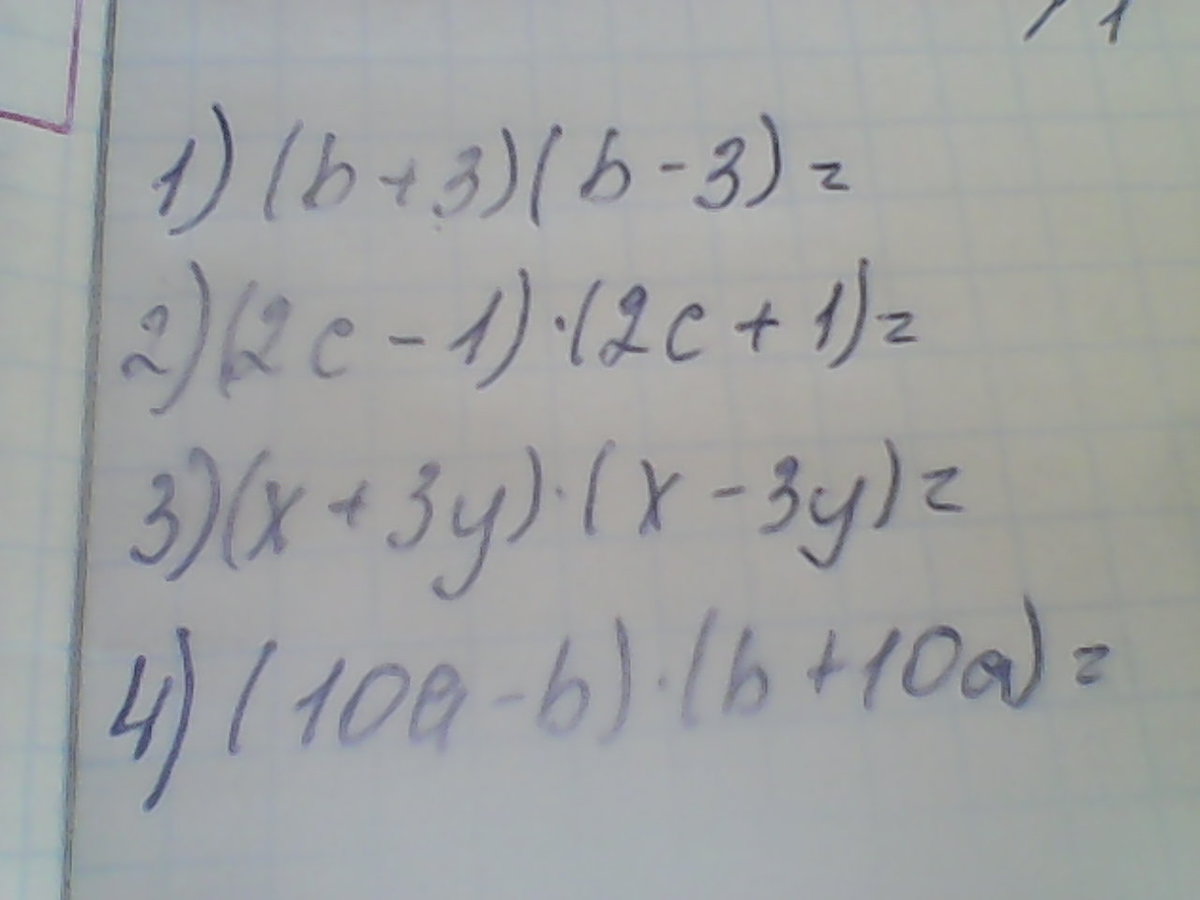 1) (b + 3)(b - 3) =
2) (2c - 1) · (2c + 1) =
3) (x + 3y) · (x - 3y) =
4) (10a - b) · (b + 10a) =